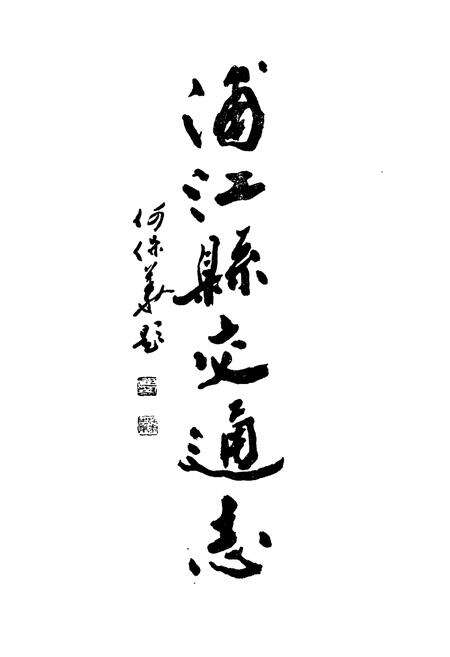 浦江縣交通志
何保义題